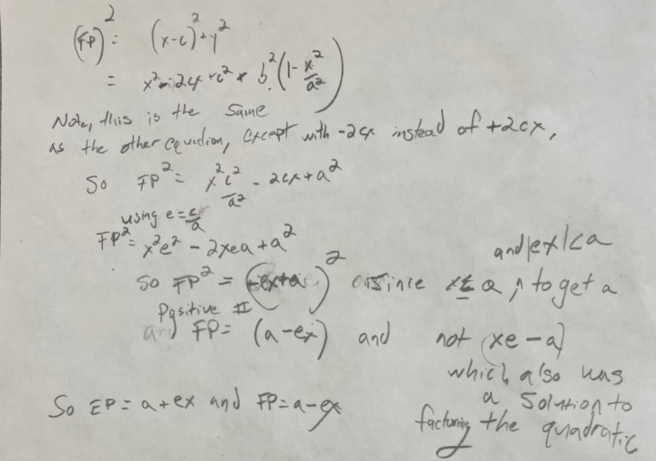 (FP)² = (x-c)² + y²
= x² - 2cx + c² + b²(1 - x²/a²)
Note, this is the same
as the other equation, except with -2cx instead of +2cx,
So FP² = x²c²/a² - 2cx + a²
using e = c/a
FP² = x²e² - 2xea + a²
and |ex| < a
So FP² = (-ex+a)² since x ≤ a, to get a
positive #
and FP = (a-ex) and not (xe-a)
which also was
a solution to
factoring the quadratic
So EP = a+ex and FP = a-ex